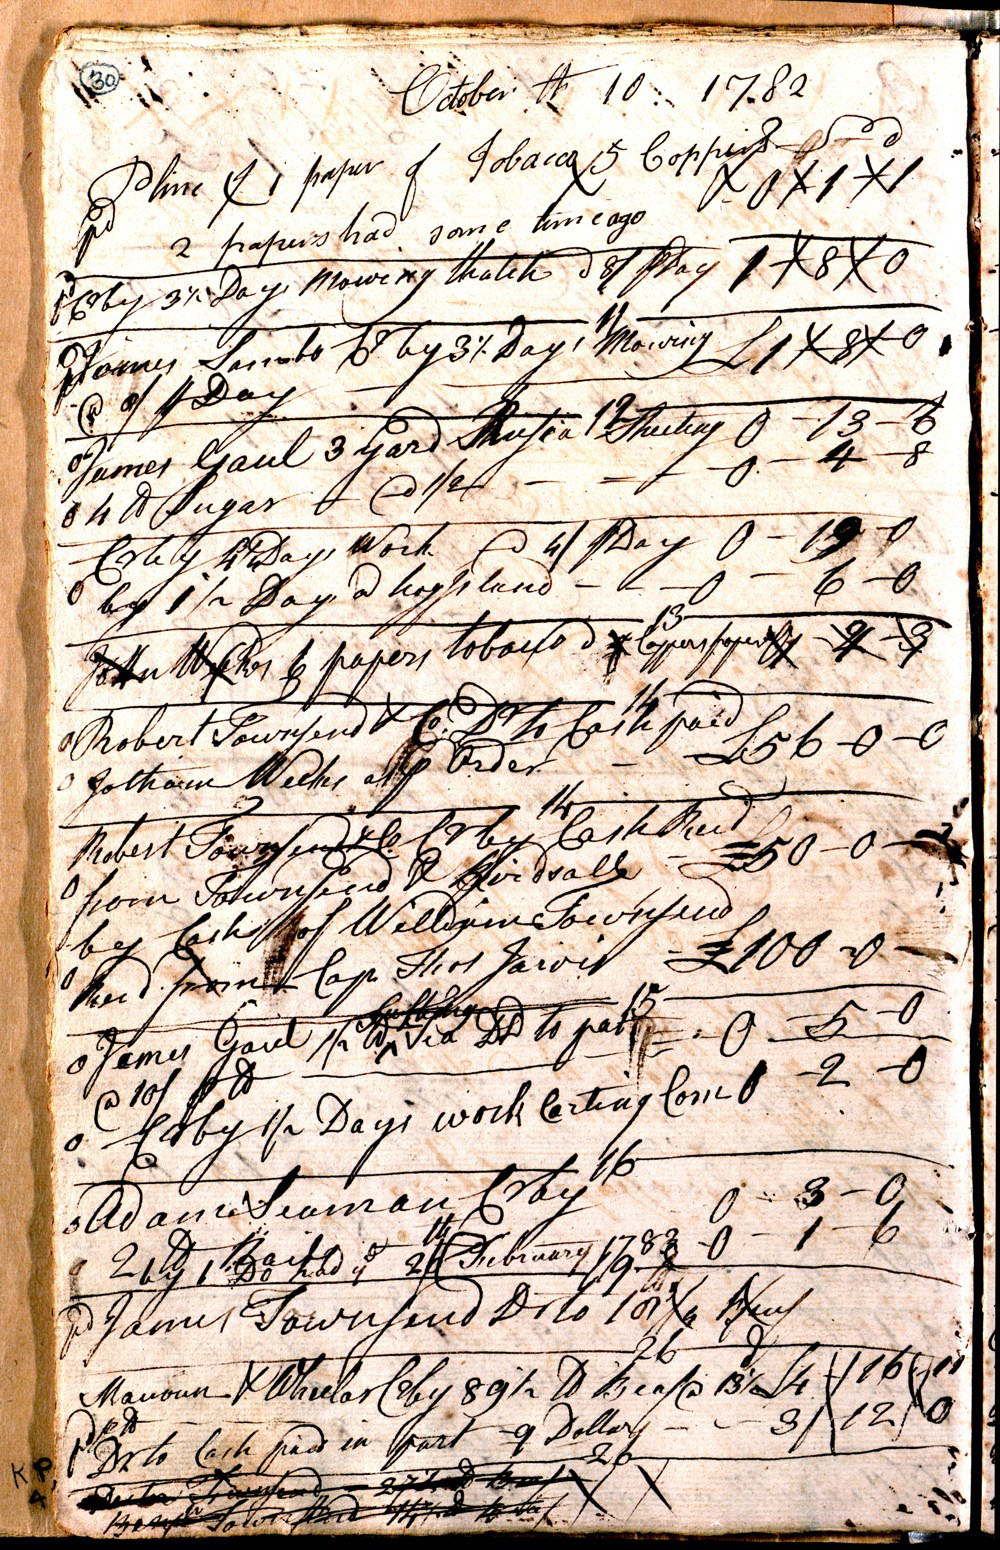 130
October th 10 17.82
Pline 1 paper of Tobacco 5 Coppers 0 1 1
pd 2 papers had some time ago
Cr by 3½ Days Mowing thatch @ 8/ p Day 1 8 0
11
James Sambo Cr by 3½ Days Mowing £1 8 0
@ 8/ p Day
12
James Gaul 3 Yard Sheeting 0 - 13 - 6
4 lb Sugar @ 1/2 - - - 0 - 4 - 8
Cr by Days Work @ 4/ p Day 0 - 19 - 0
by 1½ Day @ hogs land - - 0 - 6 - 0
13
John Weekes 6 papers tobacco
14
Robert Townsend & Co. Dr to Cash paid
Jotham Weeks as p Order - £56 - 0 - 0
14
Robert Townsend & Co Cr by Cash Recd
from Townsend & Birdsall - £50 - 0 -
by Cash of William Townsend
Recd from Cap Thos Jarvis £100 - 0 -
15
James Gaul ½ lb Tea Dr to 0 - 5 - 0
@ 10/ p lb
Cr by 1½ Days work Carting Corn 0 - 2 - 0
16
Adam Seaman Cr by 0 - 3 - 0
2 lb
by 1 Do had February 1783 - 0 - 1 - 6
19
pd James Townsend Dr to
26
Wheelar Cr by 89½ lb £4 16 11
Dr to Cash paid in part 9 Dollars - - 3 12 0
26
Townsend
Townsend
KP
4